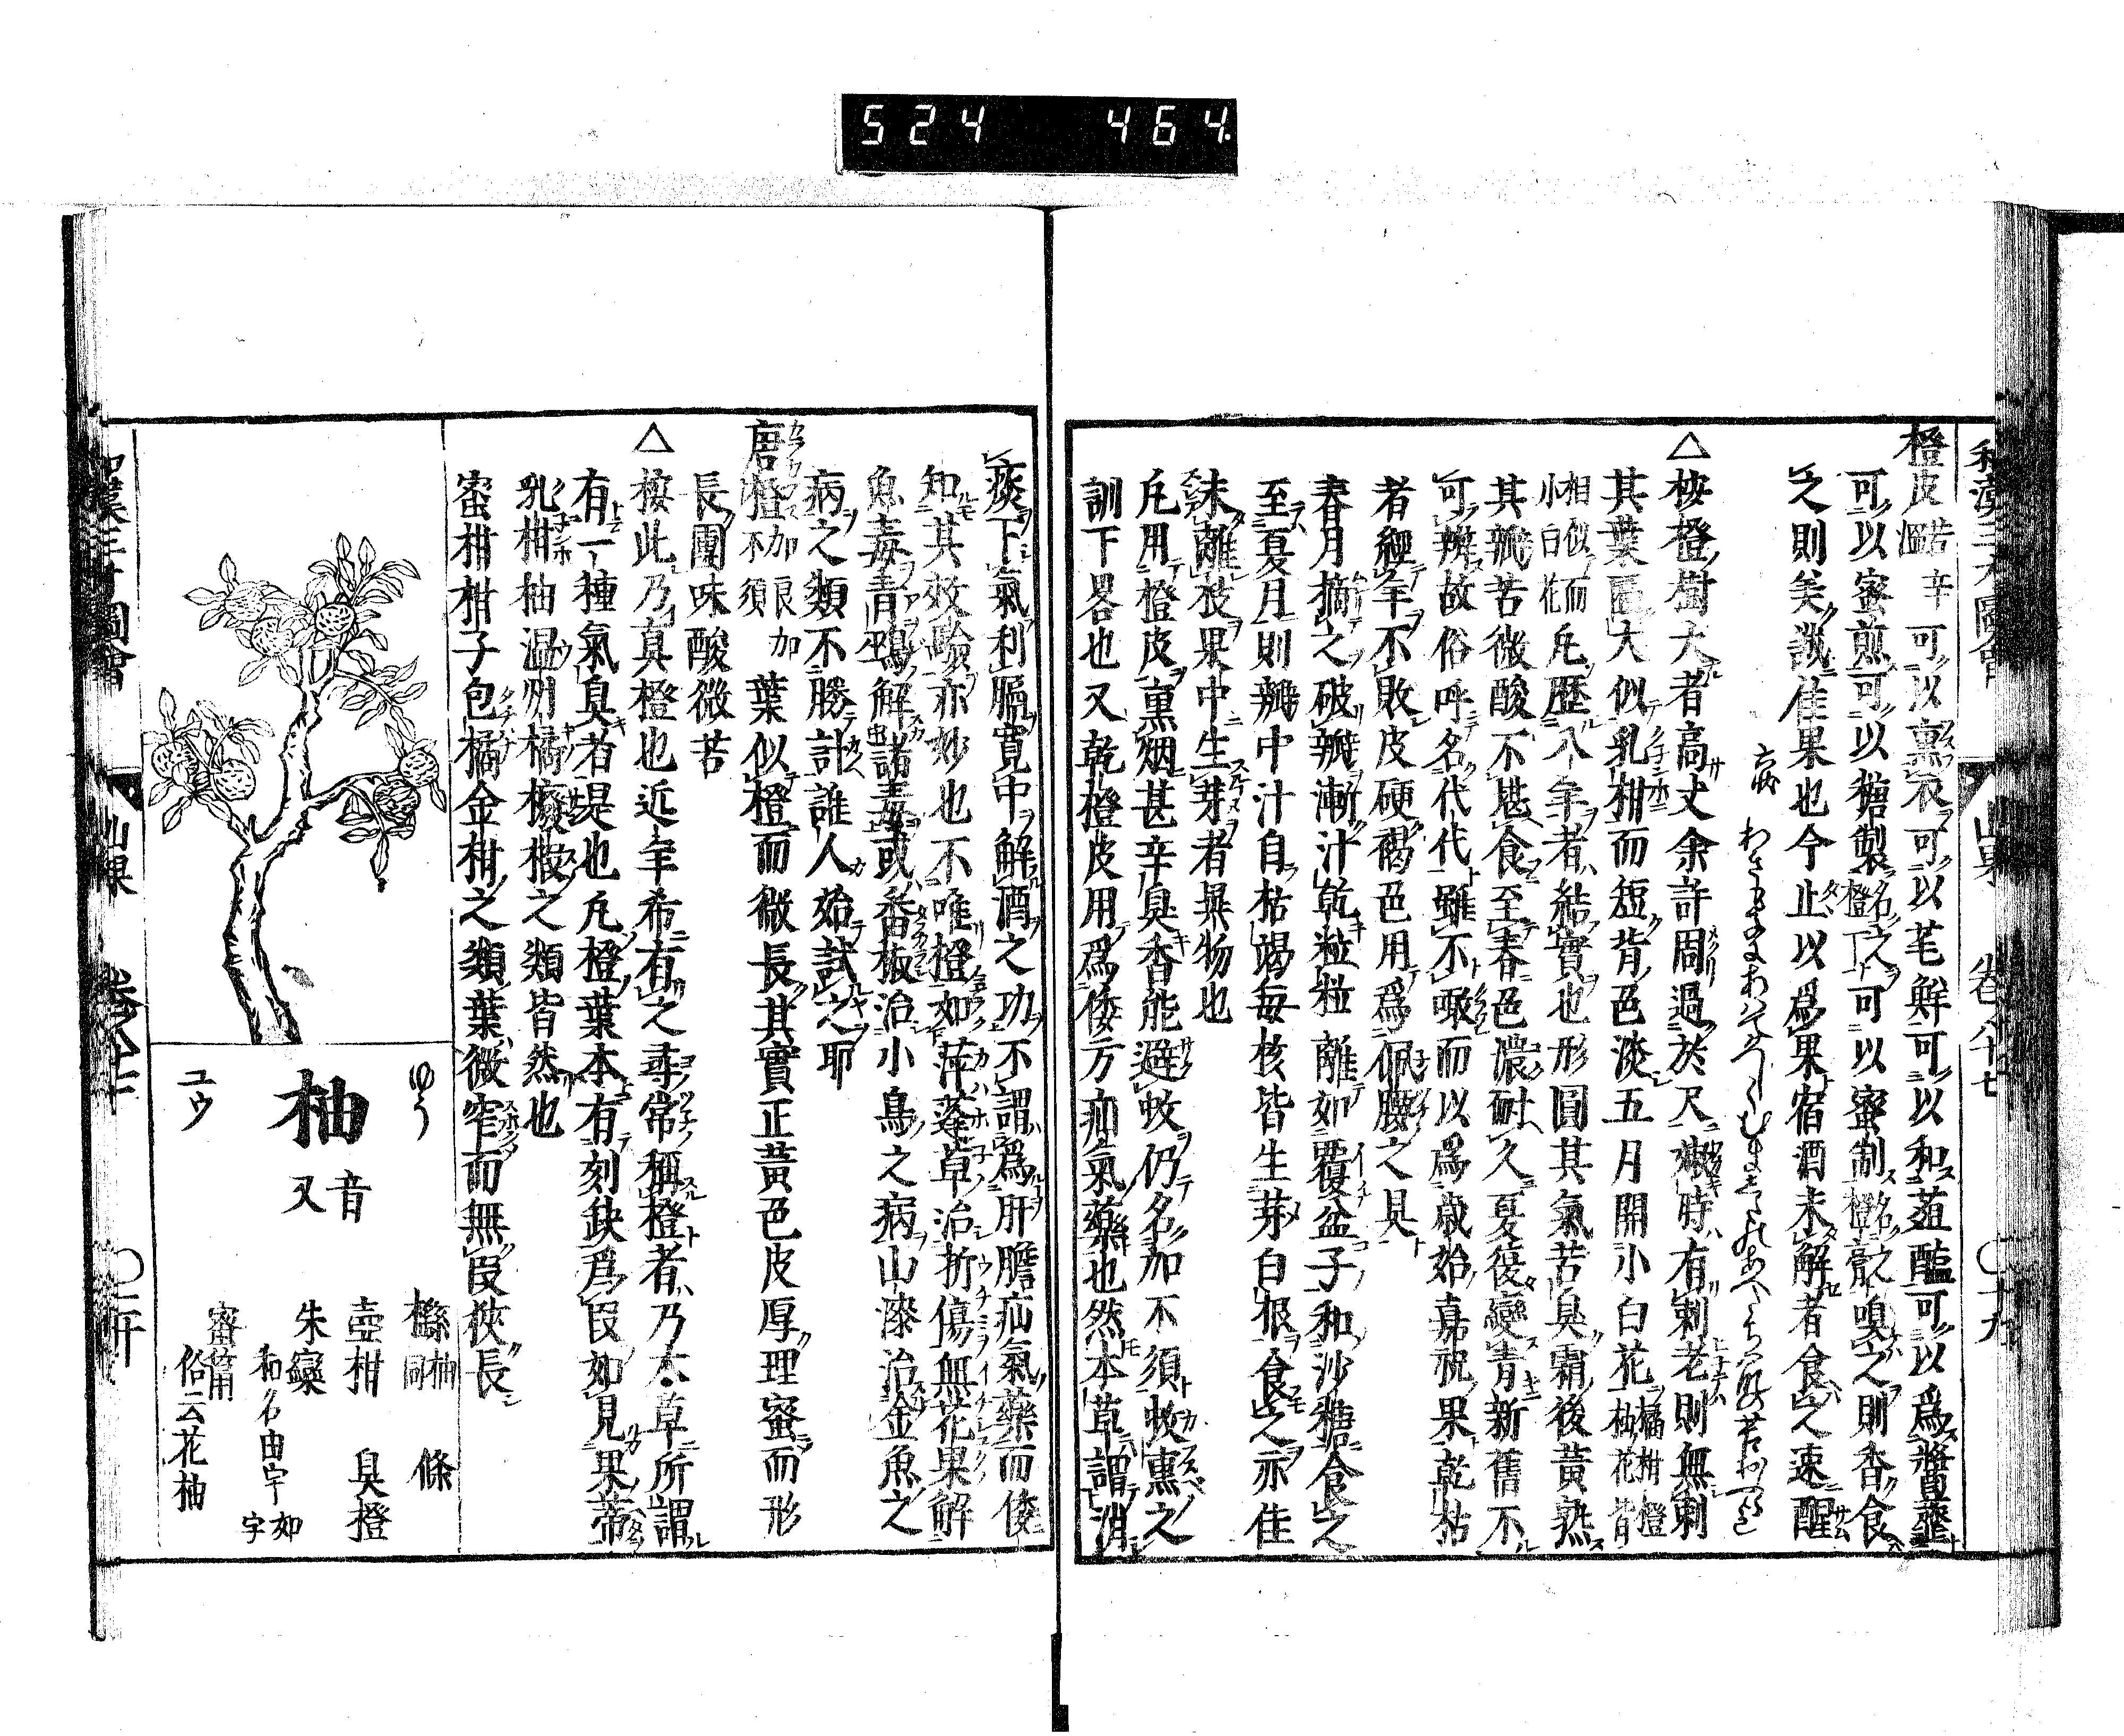 524 464
和漢三才圖會 山果 卷八十七 〇十九
橙皮 苦辛溫 可以熏衣可以芼鮮可以和葅醢可以爲醬虀
可以蜜煎可以糖製名之橙丁可以蜜制名之橙膏嗅之則香食
之則美誠佳果也今止以爲果宿酒未解者食之速醒
△按橙樹大者高丈余許周過於尺嫩時有刺老則無刺
其葉區大似乳柑而短背色淡五月開小白花橘柑橙柚花皆
相似而小白花凡歷八年者結實也形圓其氣苦臭霜後黃熟
其瓤苦微酸不堪食至春色濃耐久夏復變青新舊不
可辨故俗呼名代代雖不噉而以爲歲始嘉祝果乾枯
者經年不敗皮硬褐色用爲佩腰之具
春月摘之破瓣漸汁乾粒粒離如覆盆子和沙糖食之
至夏月則瓣中汁自枯竭每核皆生芽白根食之亦佳
未離枝果中生芽者異物也
凡用橙皮熏烟甚辛臭香能避蚊仍名加不須蚊熏之
訓下畧也又乾橙皮用爲倭方疝氣藥也然本草謂消
痰下氣利膈寬中解酒之功不謂爲肝膽疝氣藥而倭
知其效驗亦妙也不唯橙如萍蓬草治折傷無花果解
魚毒青鳩解諸毒或番椒治小鳥之病山漆治金魚之
病之類不勝計誰人始試之耶
唐橙 加良加不須 葉似橙而微長其實正黃色皮厚理蜜而形
長團味酸微苦
△按此乃真橙也近年希有之尋常稱橙者乃本草所謂
有一種氣臭者是也凡橙葉本有刻缺爲叚如見果蒂
乳柑柚溫州橘櫠椴之類皆然也
蜜柑柑子包橘金柑之類葉微窄而無叚狹長
ゆう
柚 音又
ユウ
櫾 柚同 條
壺柑 臭橙
朱欒
和名由 宇如字
蜜筩
俗云花柚
和漢三才圖會 山果 卷八十七 〇二十